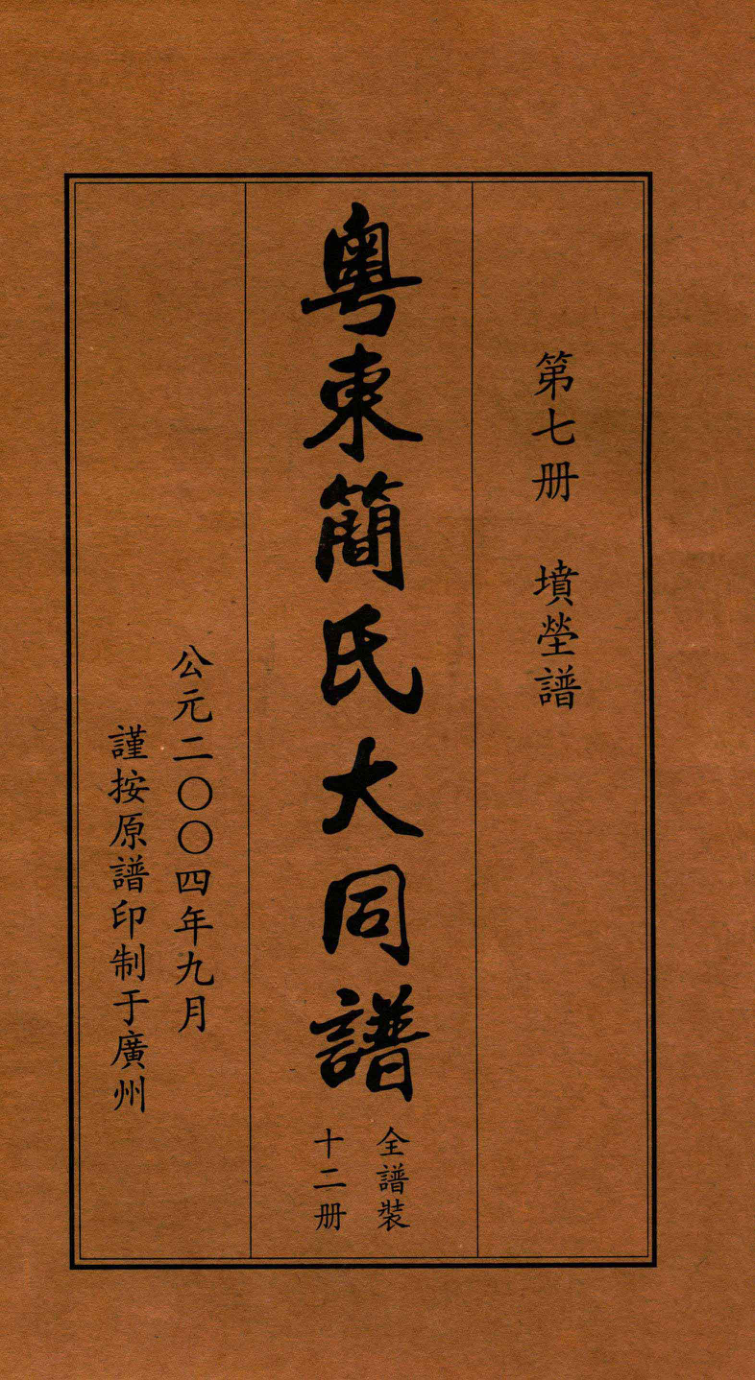 第七册　墳塋譜
粵東簡氏大同譜
全譜裝
十二册
公元二〇〇四年九月
謹按原譜印制于廣州